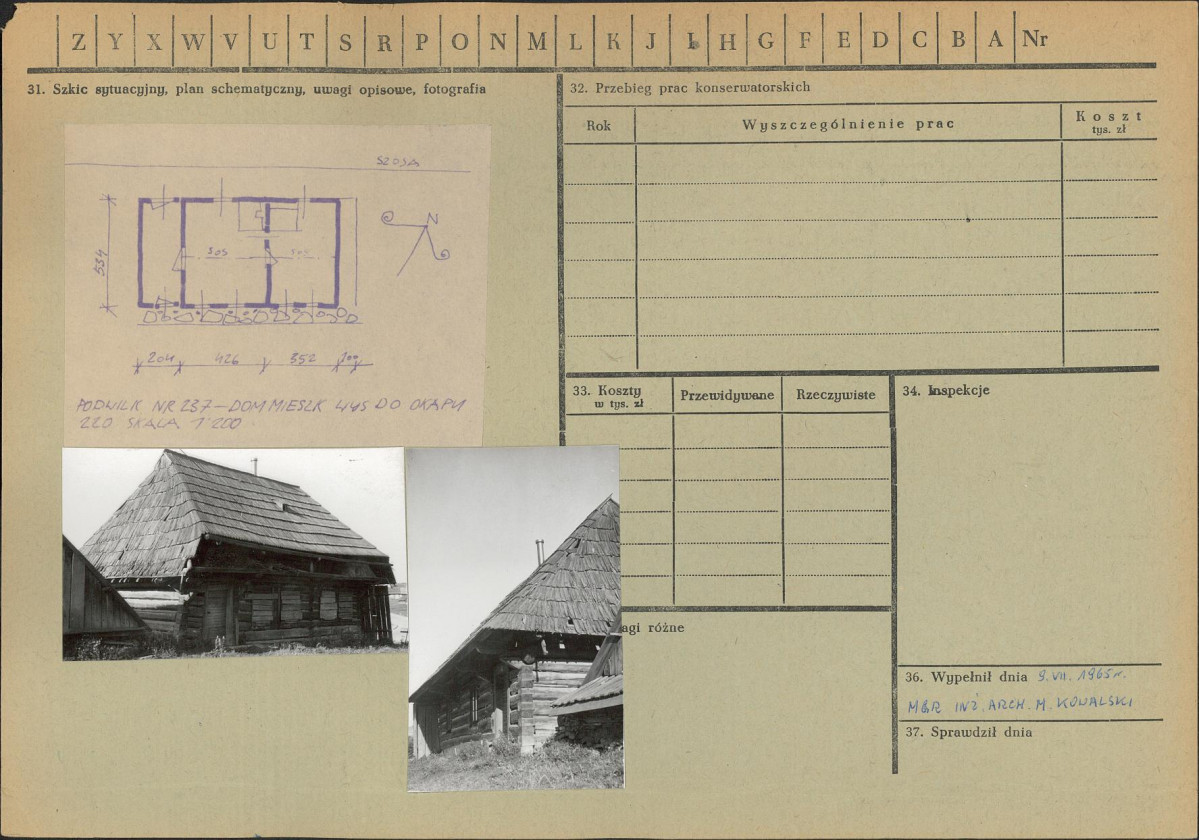 Z Y X W V U T S R P O N M L K J I H G F E D C B A Nr
31. Szkic sytuacyjny, plan schematyczny, uwagi opisowe, fotografia
SZOSA
N
534
505
505
204 426 352 100
PODWILK NR 237 — DOM MIESZK WYS DO OKAPU
220 SKALA 1:200
32. Przebieg prac konserwatorskich
Rok
Wyszczególnienie prac
Koszt
tys. zł
33. Koszty
w tys. zł
Przewidywane
Rzeczywiste
34. Inspekcje
agi różne
36. Wypełnił dnia 9.VII.1965r.
MGR INŻ. ARCH. M. KOWALSKI
37. Sprawdził dnia